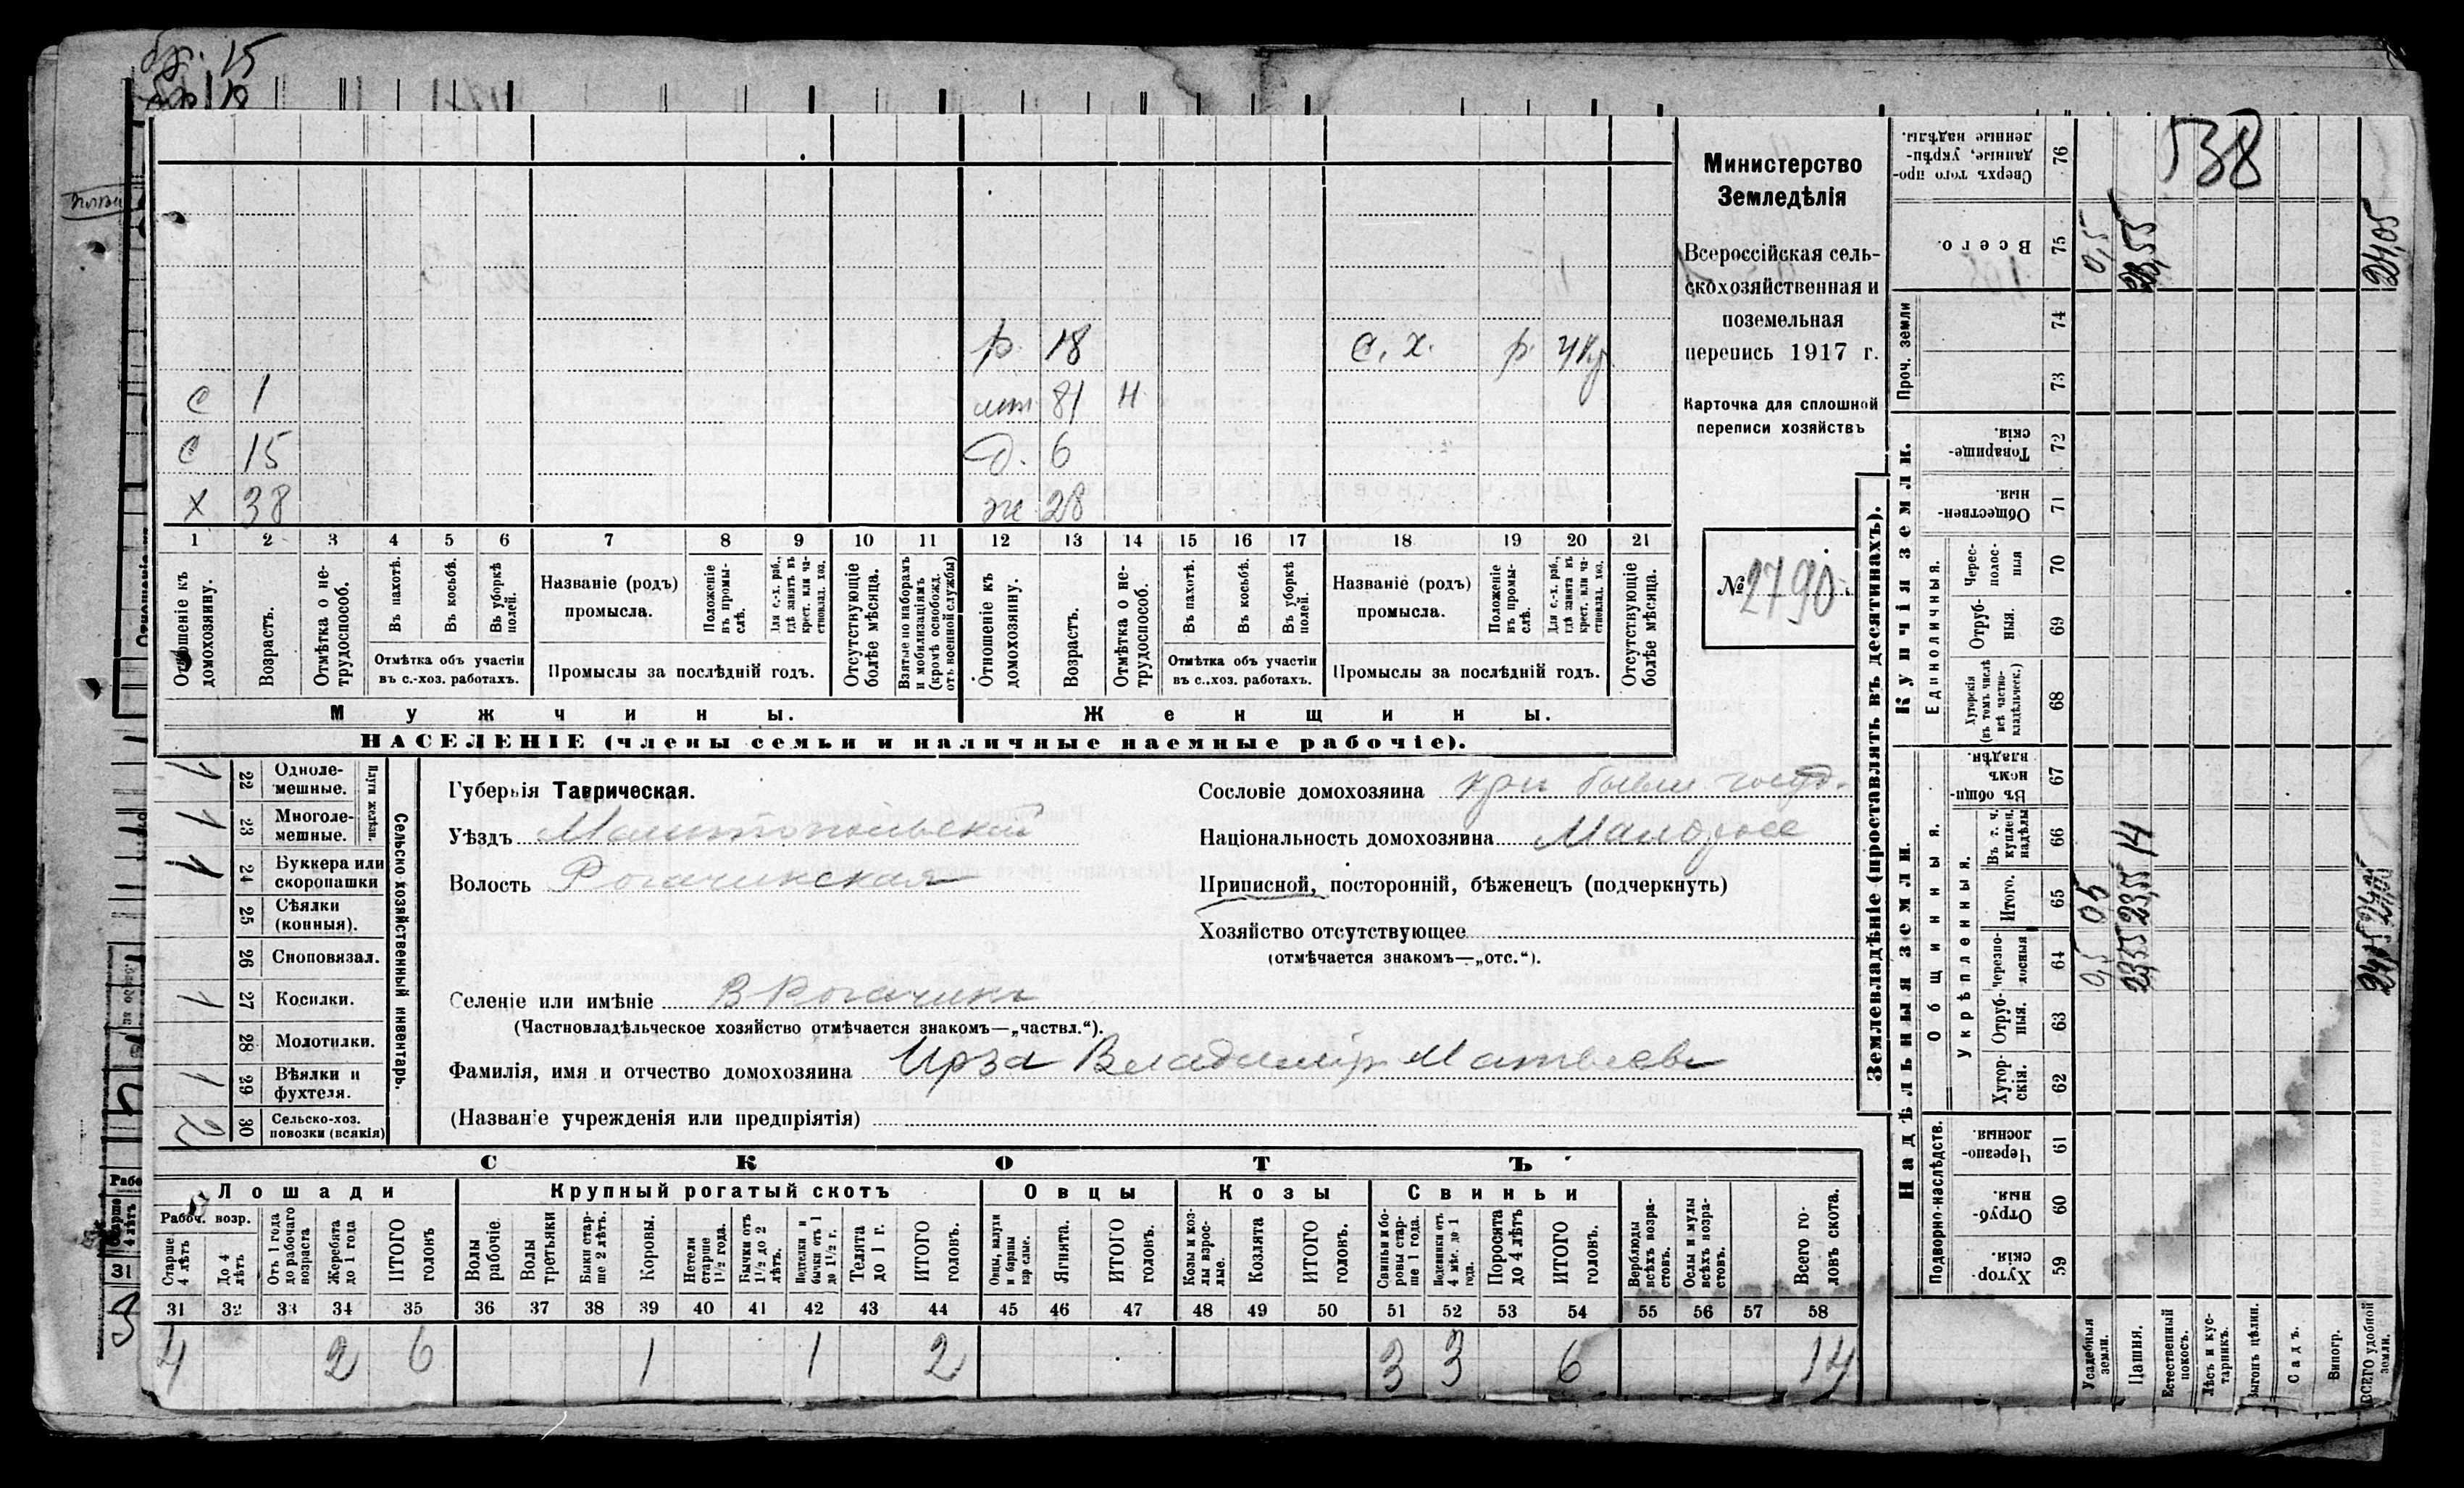 бр. 15
538
Министерство
Земледѣлія
Всероссійская сель-
скохозяйственная и
поземельная
перепись 1917 г.
Карточка для сплошной
переписи хозяйствъ
№ 2790
р. 18 с. х. р.
с 1 мт 81 н
с 15 д. 6
х 38 ж 28
1 2 3 4 5 6 7 8 9 10 11 12 13 14 15 16 17 18 19 20 21
Отношеніе къ домохозяину.
Возрастъ.
Отмѣтка о не-трудоспособ.
Въ пахотѣ.
Въ косьбѣ.
Въ уборкѣ полей.
Отмѣтка объ участіи
въ с.-хоз. работахъ.
Названіе (родъ)
промысла.
Положеніе въ промы-слѣ.
Для с.-х. раб., гдѣ занятъ въ крест. или ча-стновлад. хоз.
Промыслы за послѣдній годъ.
Отсутствующіе болѣе мѣсяца.
Взятые по наборамъ и мобилизаціямъ (кромѣ освобожд. отъ военной службы)
Отношеніе къ домохозяину.
Возрастъ.
Отмѣтка о не-трудоспособ.
Въ пахотѣ.
Въ косьбѣ.
Въ уборкѣ полей.
Отмѣтка объ участіи
въ с..хоз. работахъ.
Названіе (родъ)
промысла.
Положеніе въ промы-слѣ.
Для с.-х. раб., гдѣ занята въ крест. или ча-стновлад. хоз.
Промыслы за послѣдній годъ.
Отсутствующіе болѣе мѣсяца.
Мужчины.
Женщины.
НАСЕЛЕНІЕ (члены семьи и наличные наемные рабочіе).
Сельско хозяйственный инвентарь.
Плуги желѣзн.
1 22 Одноле-мешные.
1 23 Многоле-мешные.
1 24 Буккера или скоропашки
25 Сѣялки (конныя).
26 Сноповязал.
1 27 Косилки.
28 Молотилки.
1 29 Вѣялки и фухтеля.
2 30 Сельско-хоз. повозки (всякія)
Губернія Таврическая.
Уѣздъ Мелитопольскій
Волость Рогачинская
Селеніе или имѣніе В Рогачикъ
(Частновладѣльческое хозяйство отмѣчается знакомъ—„частвл.“).
Фамилія, имя и отчество домохозяина Ирза Владиміръ Матвеевъ
(Названіе учрежденія или предпріятія)
Сословіе домохозяина крн бывш госуд.
Національность домохозяина Малоросс
Приписной, посторонній, бѣженецъ (подчеркнуть)
Хозяйство отсутствующее
(отмѣчается знакомъ—„отс.“).
СКОТЪ
Лошади
Крупный рогатый скотъ
Овцы
Козы
Свиньи
Рабоч. возр.
Старше 4 лѣтъ
До 4 лѣтъ
Отъ 1 года до рабочаго возраста
Жеребята до 1 года
ИТОГО головъ
Волы рабочіе.
Волы третьяки
Быки стар-ше 2 лѣтъ.
Коровы.
Нетели старше 1½ года.
Бычки отъ 1½ до 2 лѣтъ.
Подтелки и бычки отъ 1 до 1½ г.
Телята до 1 г.
ИТОГО головъ.
Овцы, валухи и бараны взрослые.
Ягнята.
ИТОГО головъ.
Козы и коз-лы взрос-лые.
Козлята
ИТОГО головъ.
Свиньи и бо-ровы стар-ше 1 года.
Подсвинки отъ 4 мѣс. до 1 года.
Поросята до 4 лѣтъ
ИТОГО головъ.
Верблюды всѣхъ возра-стовъ.
Ослы и мулы всѣхъ возра-стовъ.
Всего го-ловъ скота.
31 32 33 34 35 36 37 38 39 40 41 42 43 44 45 46 47 48 49 50 51 52 53 54 55 56 57 58
4 2 6 1 1 2 3 3 6 14
Землевладѣніе (проставлять въ десятинахъ).
Надѣльныя земли.
Купчія земли.
Проч. земли
Подворно-наслѣдств.
Общинныя.
Укрѣпленныя.
Единоличныя.
Хутор-скія. 59
Отруб-ныя. 60
Черезпо-лосныя. 61
Хутор-скія. 62
Отруб-ныя. 63
Черезпо-лосныя 64
Итого. 65
Въ т. ч. куплен. надѣлы 66
Въ общи-номъ владѣн. 67
Хуторскія (въ томъ числѣ всѣ частно-владѣльческ.) 68
Отруб-ныя. 69
Черес-полос-ныя 70
Обществен-ныя. 71
Товарище-скія. 72
73
74
Всего. 75
Сверхъ того про-данные, укрѣп-ленные надѣлы. 76
Усадебныя земли. 0,5 05 0,5
Пашня. 23,55 23,55 14 23,55
Естественный покосъ.
Лѣсъ и кус-тарникъ.
Выгонъ цѣлин.
Садъ.
Виногр.
ВСЕГО удобной земли. 24,05 24,05 24,05